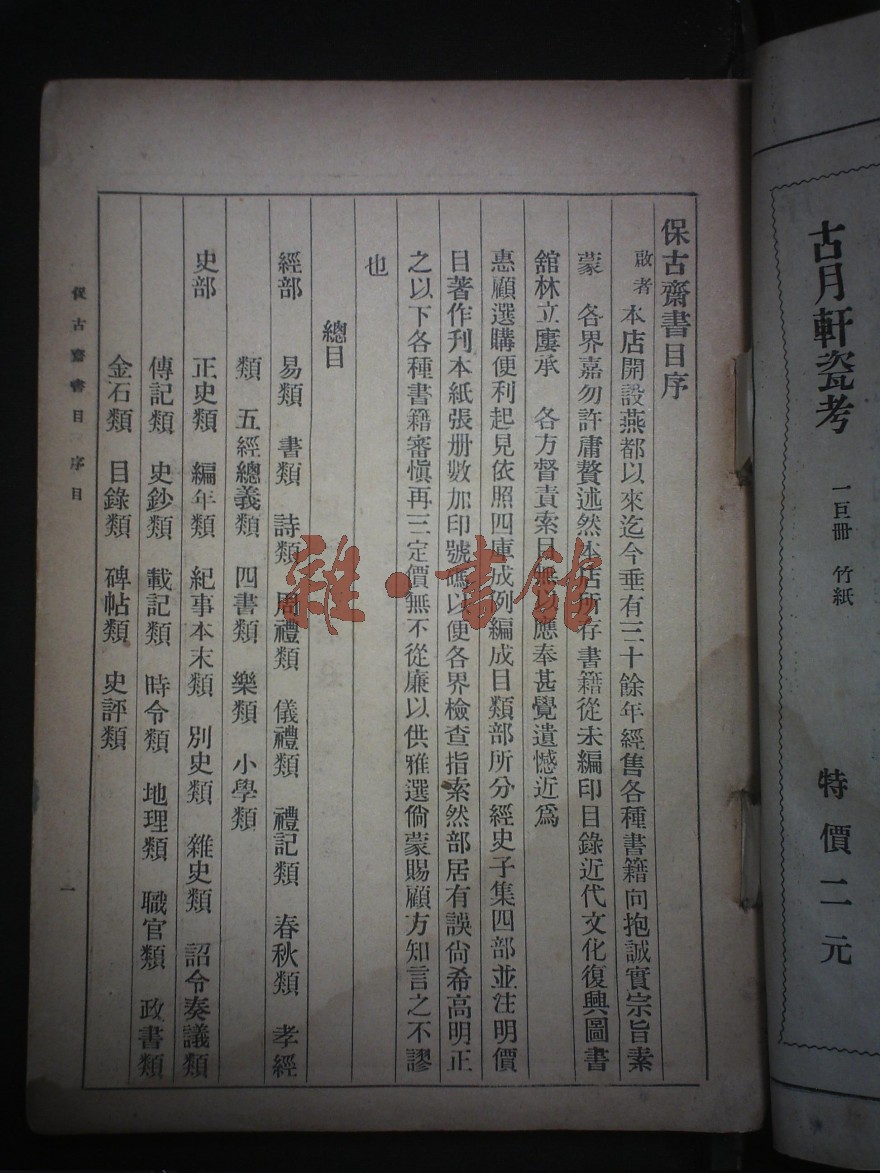 古月軒瓷考 一巨冊 竹紙 特價二元
保古齋書目序
啟者 本店開設燕都以來迄今垂有三十餘年經售各種書籍向抱誠實宗旨素
蒙 各界嘉勿許庸贅述然本店所存書籍從未編印目錄近代文化復興圖書
舘林立屢承 各方督責索目無以應奉甚覺遺憾近爲
惠顧選購便利起見依照四庫成例編成目類部所分經史子集四部並注明價
目著作刊本紙張册數加印號碼以便各界檢查指索然部居有誤尙希高明正
之以下各種書籍審愼再三定價無不從廉以供雅選倘蒙賜顧方知言之不謬
也
總目
經部 易類 書類 詩類 周禮類 儀禮類 禮記類 春秋類 孝經
類 五經總義類 四書類 樂類 小學類
史部 正史類 編年類 紀事本末類 別史類 雜史類 詔令奏議類
傳記類 史鈔類 載記類 時令類 地理類 職官類 政書類
金石類 目錄類 碑帖類 史評類
保古齋書目 序目 一
雜·書館